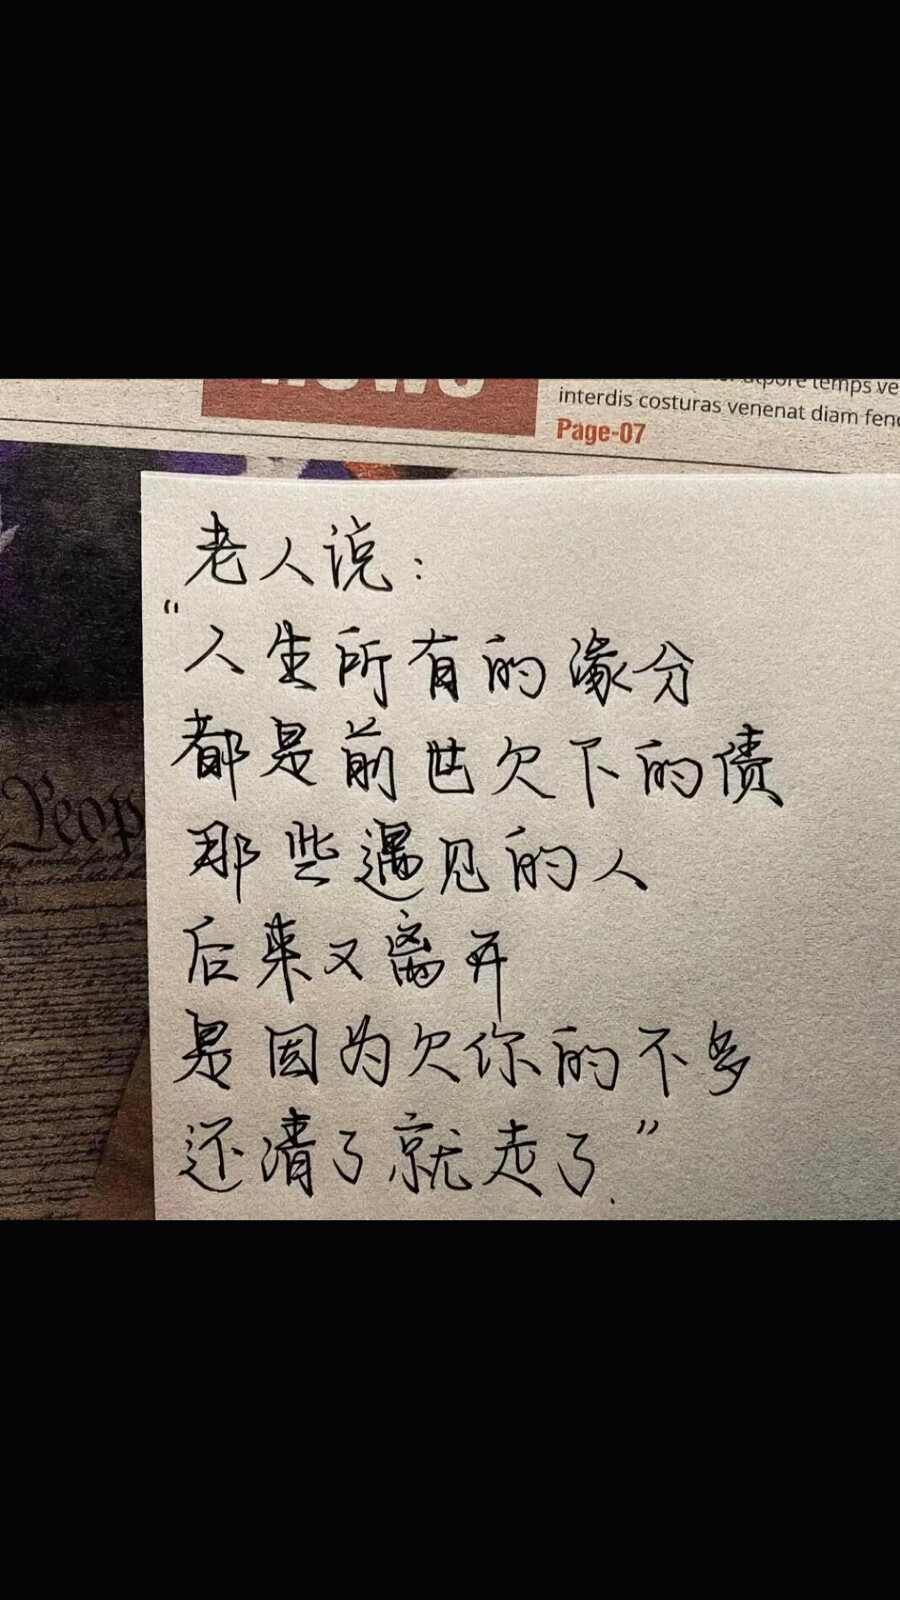 interdis costuras venenat diam
Page-07
老人说：
“人生所有的缘分
都是前世欠下的债
那些遇见的人
后来又离开
是因为欠你的不多
还清了就走了.”